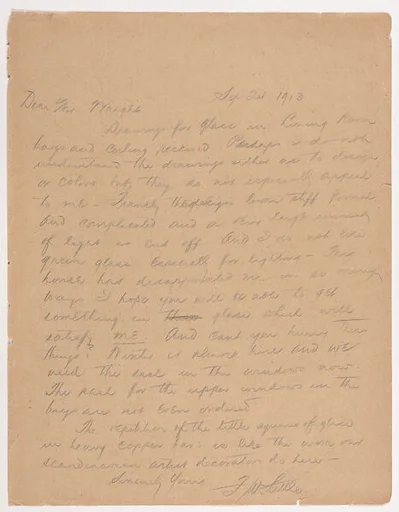 Sep 2st 1913
Dear Mr Wright
Drawings for glass in Living Room
bays and ceiling received. Perhaps I do not
understand the drawings either as to design
or colors but they do not especially appeal
to me. Frankly the designs seem stiff formal
and complicated and a very large amount
of light is cut off. And I do not like
green glass especially for lighting - This
house has disappointed me in so many
ways I hope you will be able to get
something in glass which will
satisfy me. And cant you hurry
things? Winter is almost here and we
need this seal in the windows now
The for the upper windows in the
bays are not even ordered
The repetition of the little squares of glass
in heavy copper bars is like the work our
scandinavian artist decorator do here -
Sincerely Yours F W Little